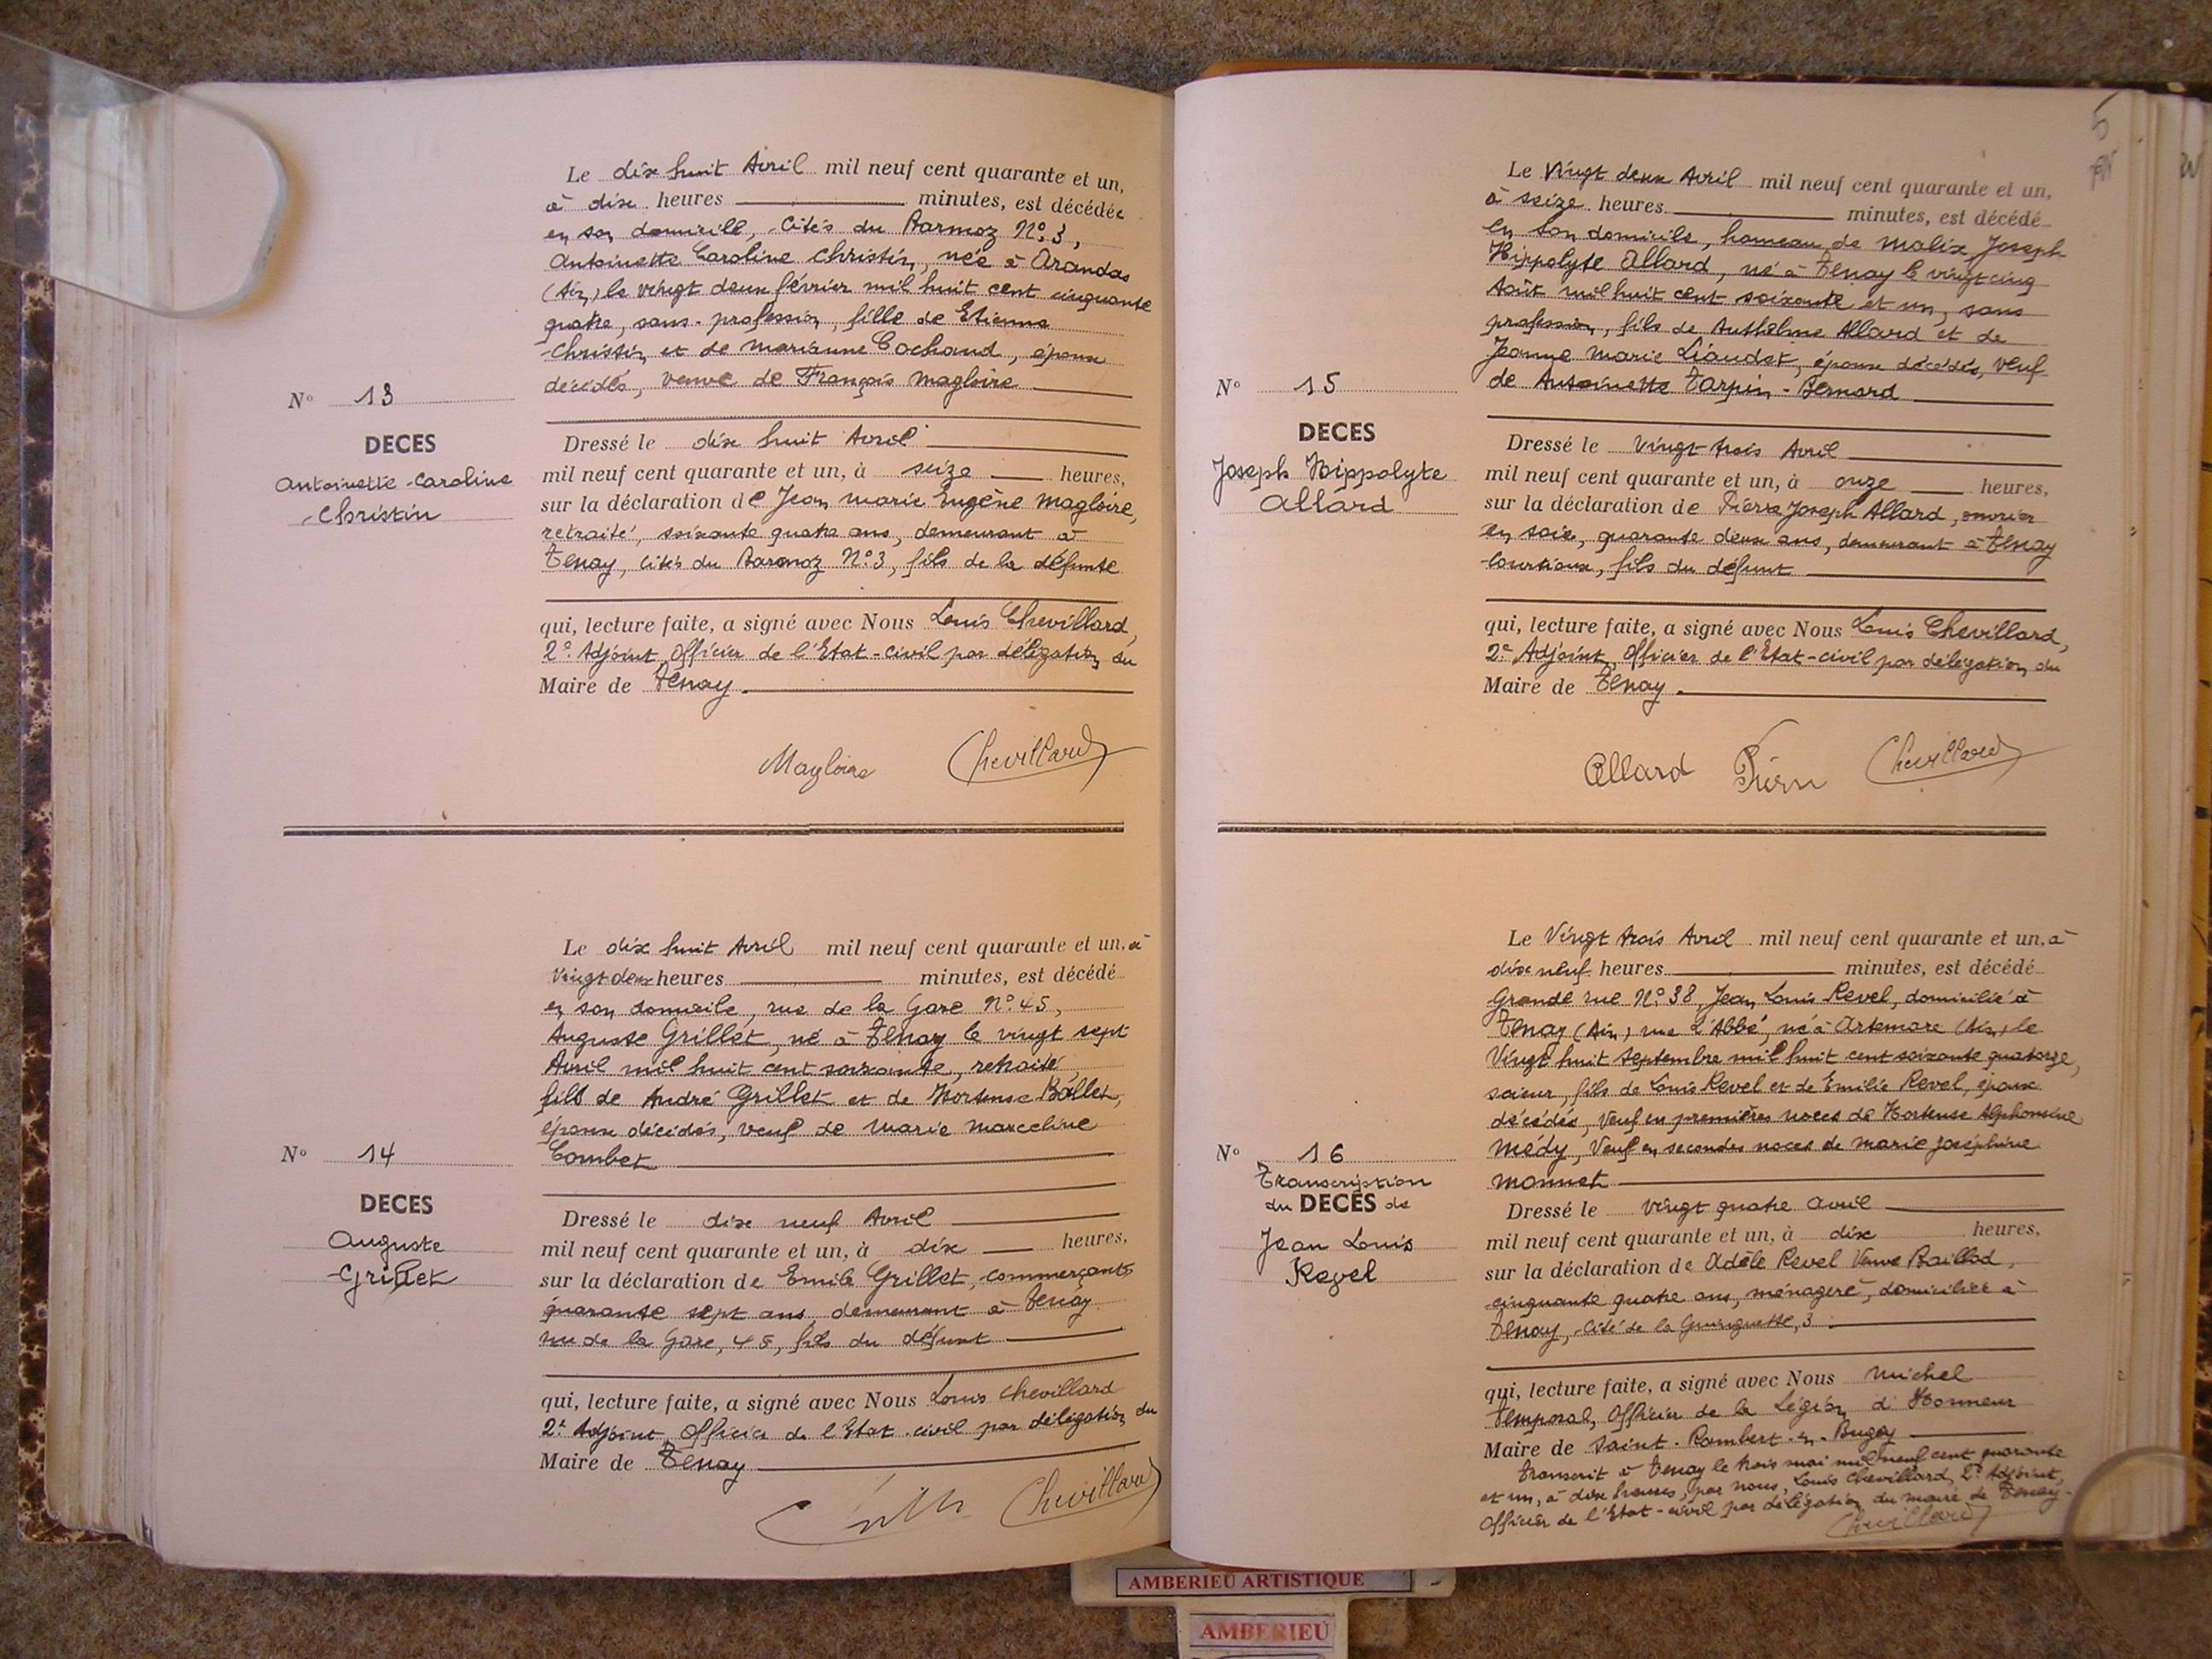 Le dix huit Avril mil neuf cent quarante et un,
à dix heures minutes, est décédée
en son domicile, Cités du Barmoz N°3,
Antoinette Caroline Christin, née à Arandas
(Ain) le vingt deux février mil huit cent cinquante
quatre, sans profession, fille de Etienne
Christin et de Marianne Cochand, époux
décédés, veuve de François Magloire
N° 13
DECES
Antoinette-Caroline
Christin
Dressé le dix huit Avril
mil neuf cent quarante et un, à seize heures,
sur la déclaration de Jean Marie Eugène Magloire,
retraité, soixante quatre ans, demeurant à
Tenay, Cités du Barmoz N°3, fils de la défunte
qui, lecture faite, a signé avec Nous Louis Chevillard,
2e Adjoint, Officier de l'Etat-civil par délégation du
Maire de Tenay.
Magloire Chevillard
Le dix huit Avril mil neuf cent quarante et un, à
Vingt deux heures minutes, est décédé
en son domicile, rue de la Gare N°45,
Auguste Grillet, né à Tenay le vingt sept
Avril mil huit cent soixante, retraité,
fils de André Grillet et de Hortense Ballet,
époux décédés, veuf de Marie Marceline
Combet
N° 14
DECES
Auguste
Grillet
Dressé le dix neuf Avril
mil neuf cent quarante et un, à dix heures,
sur la déclaration de Emile Grillet, commerçant
quarante sept ans, demeurant à Tenay
rue de la Gare, 45, fils du défunt
qui, lecture faite, a signé avec Nous Louis Chevillard
2e Adjoint, Officier de l'Etat-civil par délégation du
Maire de Tenay
Chevillard
5
Le Vingt deux Avril mil neuf cent quarante et un,
à seize heures minutes, est décédé
en son domicile, hameau de Malix, Joseph
Hippolyte Allard, né à Tenay le vingt cinq
Août mil huit cent soixante et un, sans
profession, fils de Anthelme Allard et de
Jeanne Marie Liaudet, époux décédés, veuf
de Antoinette Tarpin-Bernard
N° 15
DECES
Joseph Hippolyte
Allard
Dressé le Vingt trois Avril
mil neuf cent quarante et un, à onze heures,
sur la déclaration de Pierre Joseph Allard, ouvrier
en soie, quarante deux ans, demeurant à Tenay
Courtioux, fils du défunt
qui, lecture faite, a signé avec Nous Louis Chevillard,
2e Adjoint, Officier de l'Etat-civil par délégation du
Maire de Tenay.
Allard Pierre Chevillard
Le Vingt trois Avril mil neuf cent quarante et un, à
dix neuf heures minutes, est décédé
Grande rue N°38, Jean Louis Revel, domicilié à
Tenay (Ain) rue L'Abbé, né à Artemare (Ain) le
Vingt huit septembre mil huit cent soixante quatorze,
scieur, fils de Louis Revel et de Emilie Revel, époux
décédés, Veuf en premières noces de Hortense Alphonsine
Médy, Veuf en secondes noces de Marie Joséphine
Monnet
N° 16
Transcription
du DECES de
Jean Louis
Revel
Dressé le vingt quatre avril
mil neuf cent quarante et un, à dix heures,
sur la déclaration de Adèle Revel Veuve Baillod,
cinquante quatre ans, ménagère, domiciliée à
Tenay, Cité de la Guinguette, 3
qui, lecture faite, a signé avec Nous Michel
Temporal, Officier de la Légion d'Honneur
Maire de Saint-Rambert-en-Bugey
Transcrit à Tenay le trois mai mil neuf cent quarante
et un, à dix heures, par nous, Louis Chevillard, 2e Adjoint,
Officier de l'Etat-civil par délégation du maire de Tenay
Chevillard
AMBERIEU ARTISTIQUE
AMBERIEU